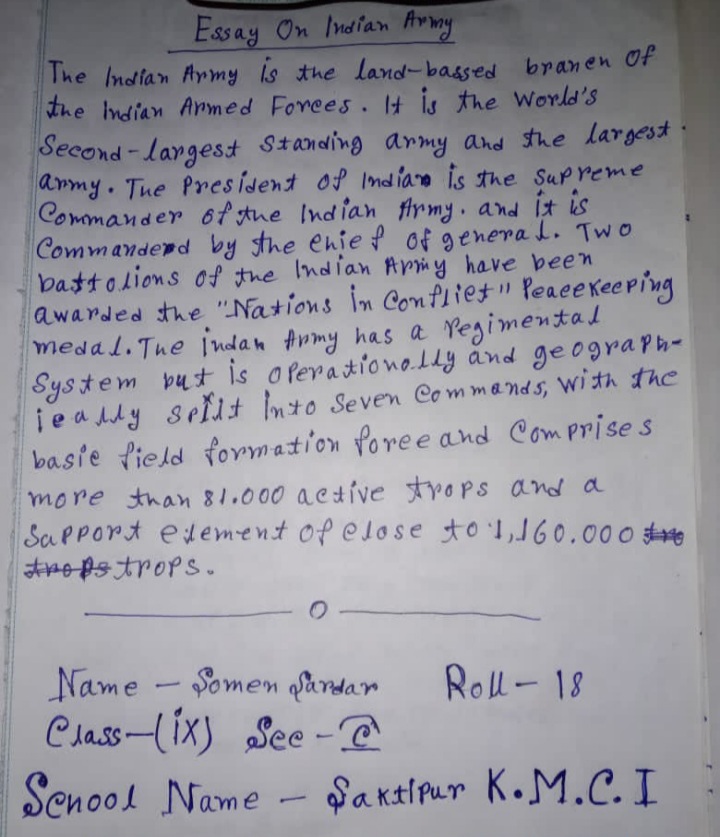 Essay On Indian Army
The Indian Army is the land-bassed branch of
the Indian Armed Forces. It is the World's
Second-largest Standing army and the largest
army. The President of Indian is the supreme
Commander of the Indian Army. and it is
Commanderd by the chief of general. Two
battolions of the Indian Army have been
awarded the "Nations in Conflict" Peacekeeping
medal. The indan Army has a regimental
System but is operationally and geograph-
ically split Into Seven Commands, with the
basic field formation force and Comprises
more than 81.000 active trops and a
Support element of close to 1,160.000
trops.
Name - Somen Sardar Roll - 18
Class - (ix) Sec - C
School Name - Saktipur K.M.C.I